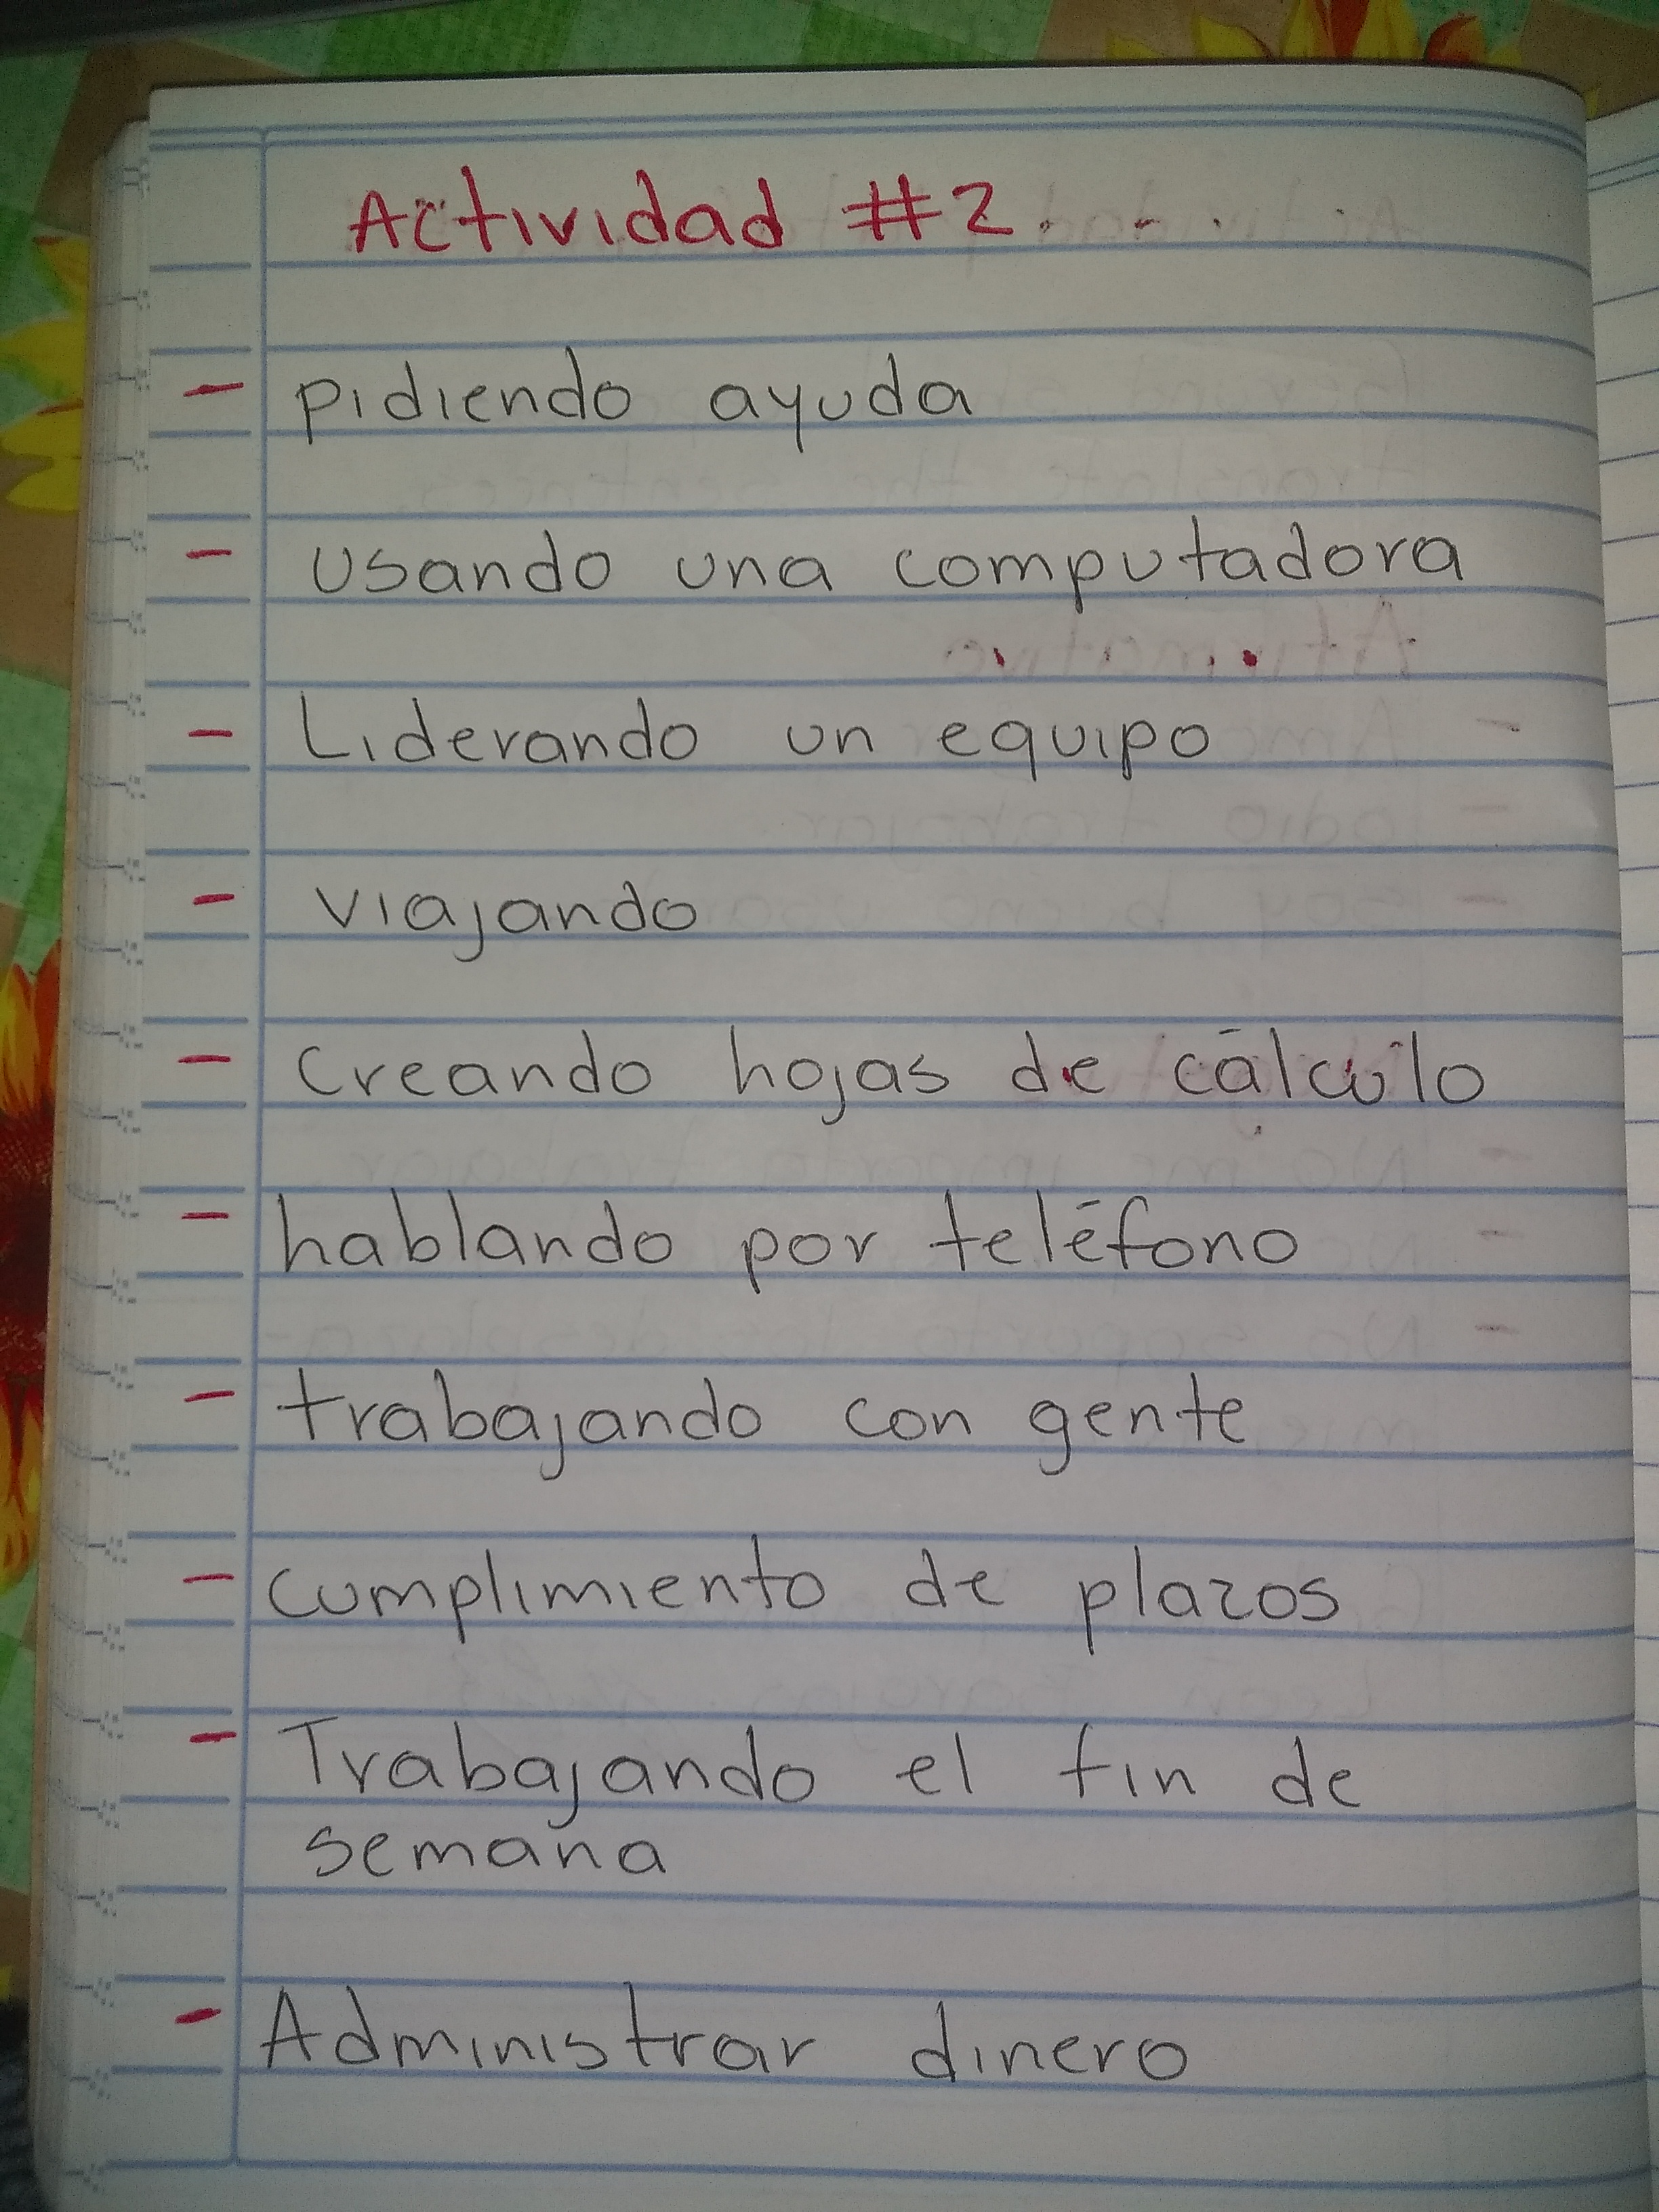 Actividad #2
- pidiendo ayuda
- usando una computadora
- Liderando un equipo
- viajando
- creando hojas de cálculo
- hablando por teléfono
- trabajando con gente
- cumplimiento de plazos
- Trabajando el fin de
semana
- Administrar dinero